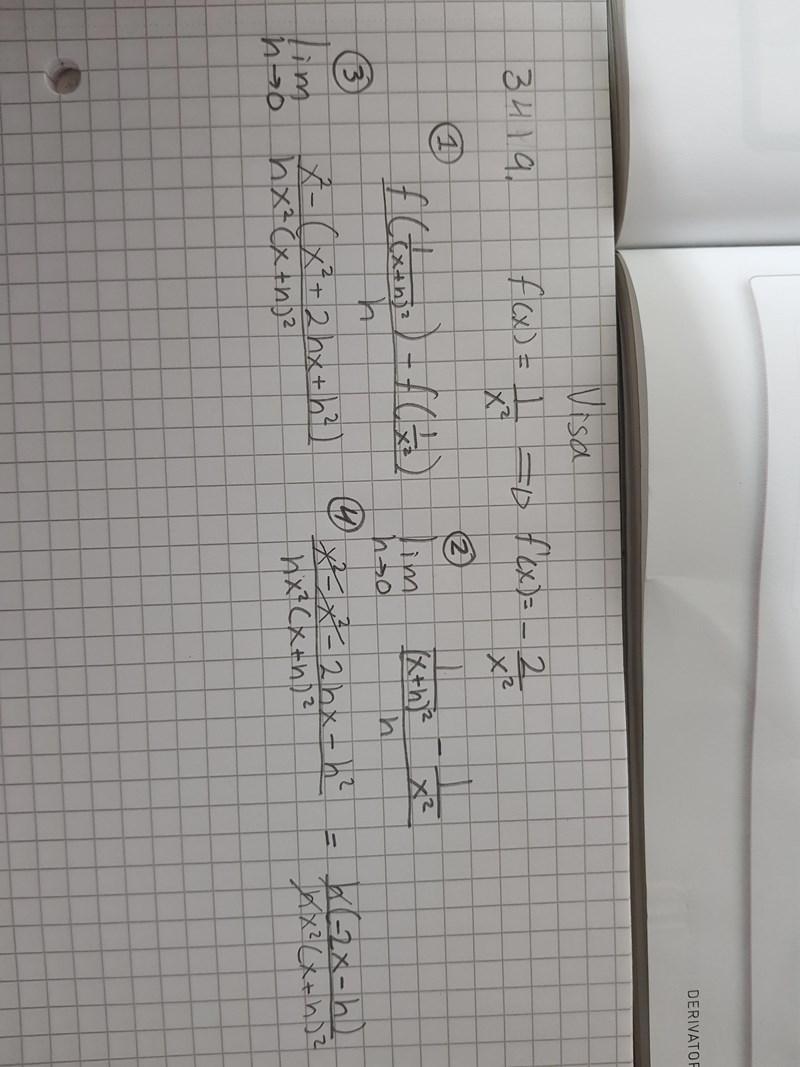 Visa
3419. f(x) = 1/x² => f'(x) = - 2/x²
① f(1/(x+h)²) - f(1/x²) / h
② lim h→0 (1/(x+h)² - 1/x²) / h
③ lim h→0 x² - (x² + 2hx + h²) / hx²(x+h)²
④ x² - x² - 2hx - h² / hx²(x+h)² = h(-2x - h) / hx²(x+h)²
DERIVATOR